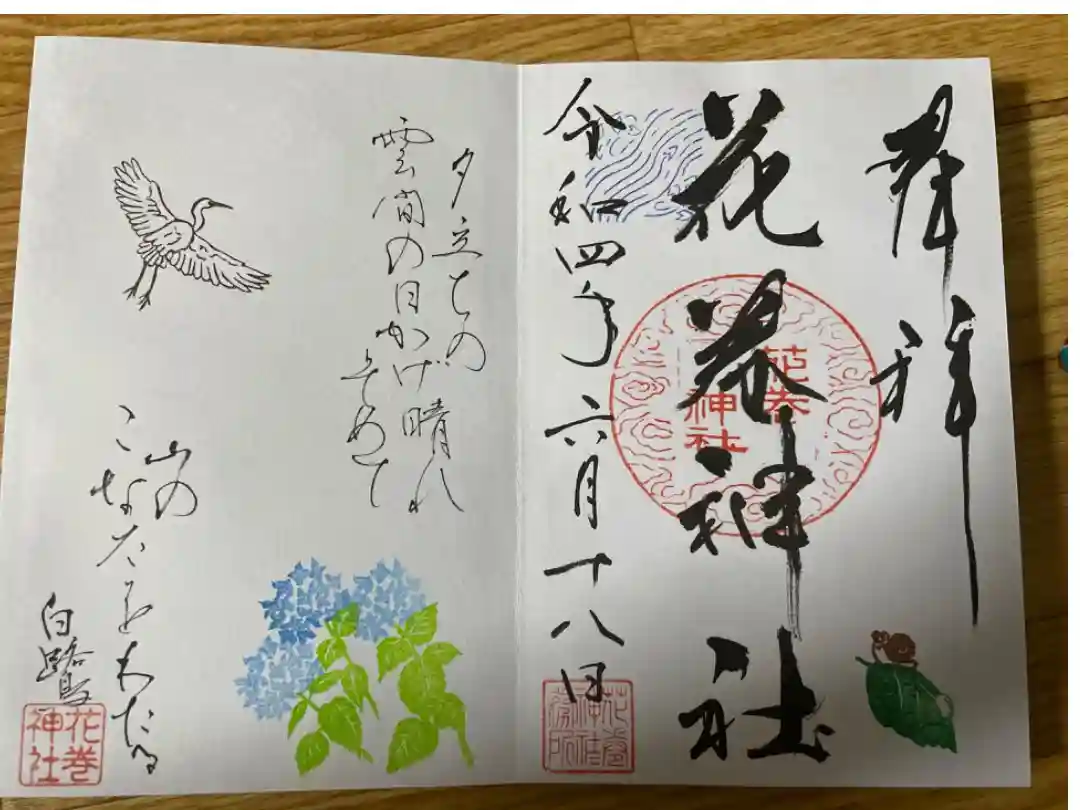 奉拝
花巻神社
花巻
神社
令和四年六月十八日
花巻
神社
務所
夕立ちの
雲間の日かげ晴れ
そめて
山の
こなたをわたる
白鷺
花巻
神社